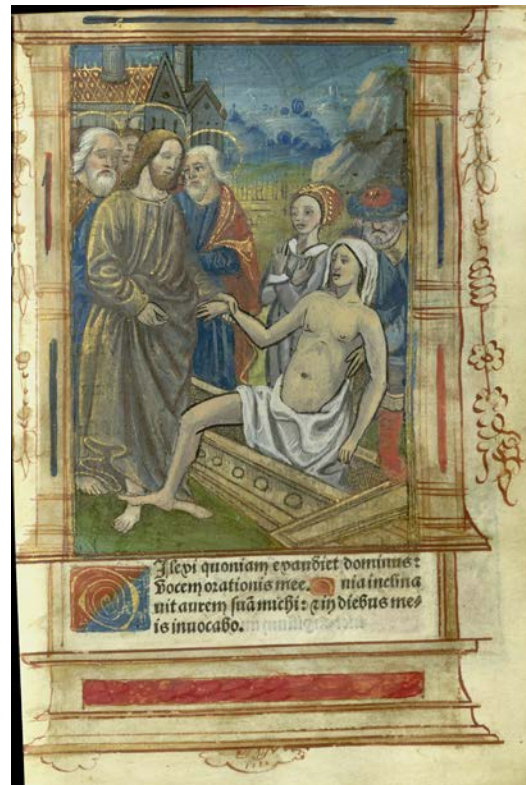 Dilexi quoniam exaudiet dominus:
vocem orationis mee. Quia inclina
uit aurem suã michi: ⁊ in diebus me-
is inuocabo.